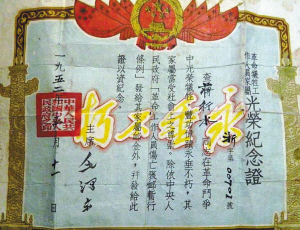 革命犧牲工
作人員家屬光榮紀念證
查蔣
同志在革命鬥爭
中光榮犧牲，豐功偉績永垂不朽，其
家屬當受社會上之尊崇。除依中央人
民政府「革命工作人員傷亡褒卹暫行
條例」發給其家屬卹金外，並發給此
證以資紀念。
主席
毛澤東
一九五二年
月十一日
永垂不朽
浙
字第00701號